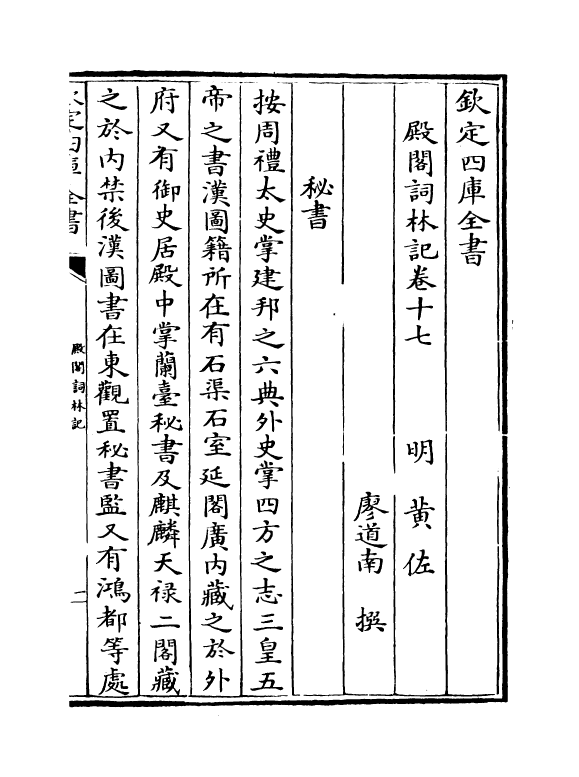 欽定四庫全書
殿閣詞林記卷十七
明 黄佐
廖道南 撰
秘書
按周禮太史掌建邦之六典外史掌四方之志三皇五
帝之書漢圖籍所在有石渠石室延閣廣内藏之於外
府又有御史居殿中掌蘭臺秘書及麒麟天禄二閣藏
之於内禁後漢圖書在東觀置秘書監又有鴻都等處
欽定四庫全書
殿閣詞林記